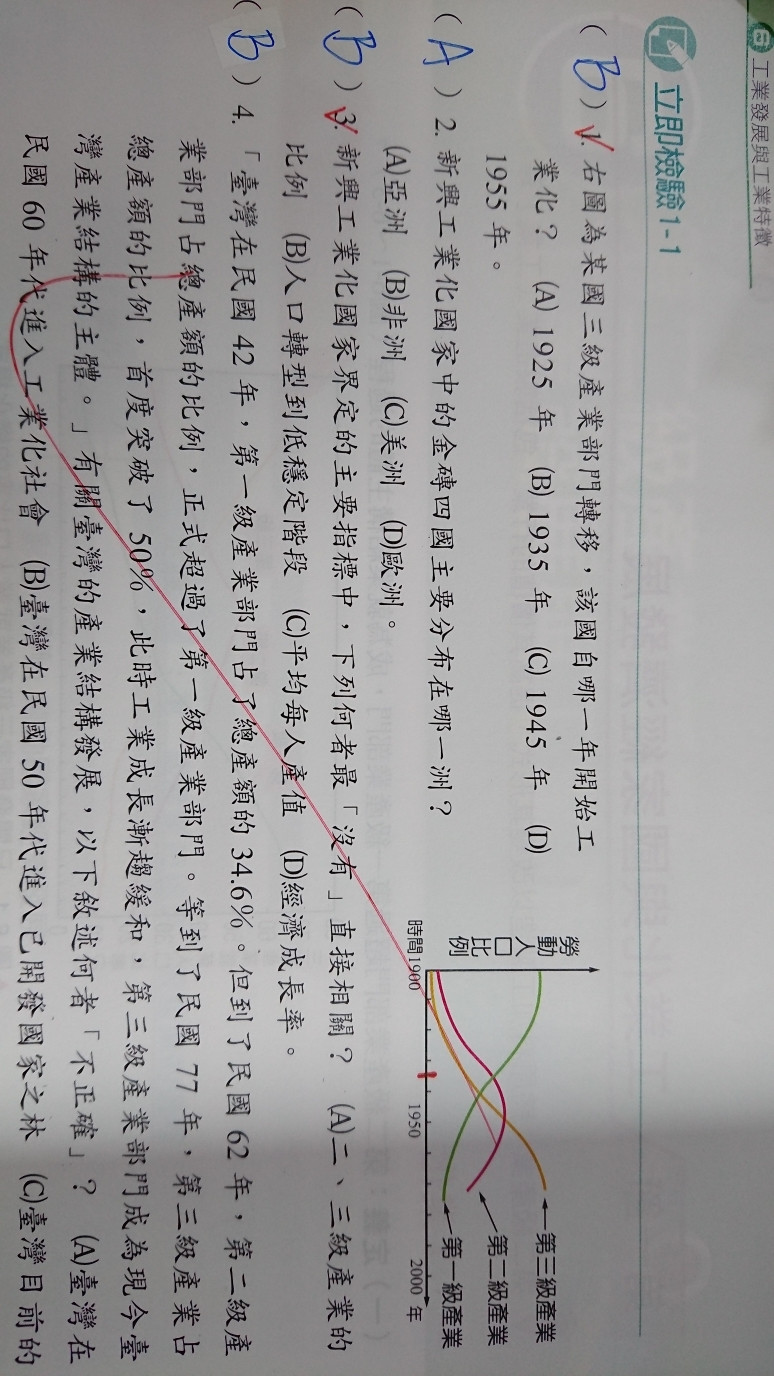 工業發展與工業特徵
立即檢驗1-1
( B ) 1. 右圖為某國三級產業部門轉移，該國自哪一年開始工
業化？ (A) 1925 年 (B) 1935 年 (C) 1945 年 (D)
1955 年。
( A ) 2. 新興工業化國家中的金磚四國主要分布在哪一洲？
(A)亞洲 (B)非洲 (C)美洲 (D)歐洲。
( B ) 3. 新興工業化國家界定的主要指標中，下列何者最「沒有」直接相關？ (A)二、三級產業的
比例 (B)人口轉型到低穩定階段 (C)平均每人產值 (D)經濟成長率。
( B ) 4. 「臺灣在民國 42 年，第一級產業部門占了總產額的 34.6%。但到了民國 62 年，第二級產
業部門占總產額的比例，正式超過了第一級產業部門。等到了民國 77 年，第三級產業占
總產額的比例，首度突破了 50%，此時工業成長漸趨緩和，第三級產業部門成為現今臺
灣產業結構的主體。」有關臺灣的產業結構發展，以下敘述何者「不正確」？ (A)臺灣在
民國 60 年代進入工業化社會 (B)臺灣在民國 50 年代進入已開發國家之林 (C)臺灣目前的
勞動人口比例
第三級產業
第二級產業
第一級產業
時間1900
1950
2000 年